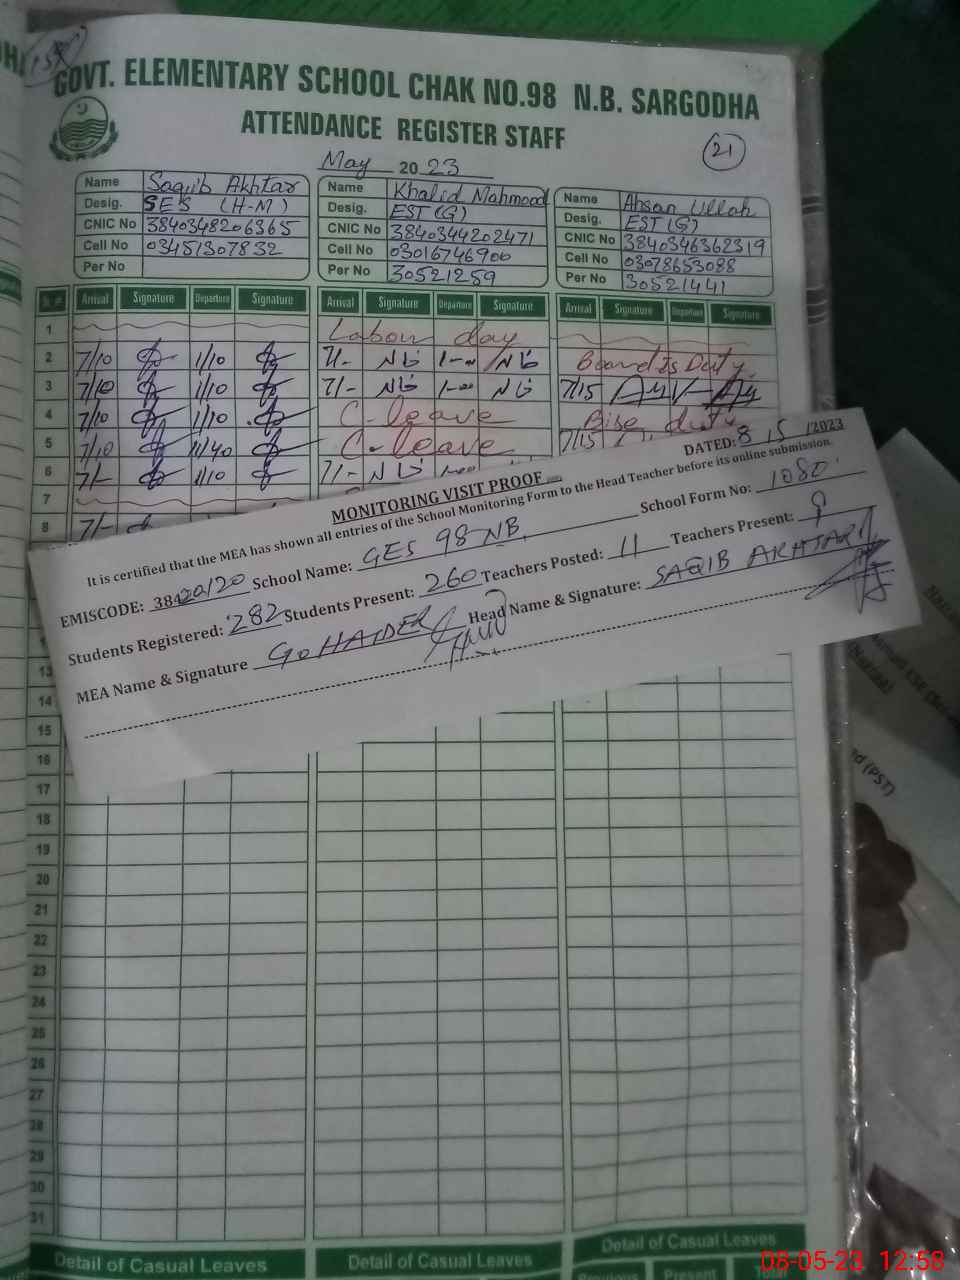 GOVT. ELEMENTARY SCHOOL CHAK NO.98 N.B. SARGODHA
ATTENDANCE REGISTER STAFF
21
May 2023
Name Saqib Akhtar
Desig. SES (H-M)
CNIC No 3840348206365
Cell No 03451307832
Per No
Name Khalid Mahmood
Desig. EST (G)
CNIC No 3840344202471
Cell No 03016746900
Per No 30521259
Name Ahsan Ullah
Desig. EST (G)
CNIC No 3840346362319
Cell No 03078653088
Per No 30521441
Sr. # Arrival Signature Departure Signature Arrival Signature Departure Signature Arrival Signature Departure Signature
1 Labour day
2 7/10 1/10 7/- 1-00 Board Is Duty
3 7/10 1/10 7/- 1-00 7/15
4 7/10 1/10 C-leave Bise duty
5 7/10 11/40 C-leave 7/15
6 7/- 1/10 7/- 1-00
7
8 7/-
MONITORING VISIT PROOF
DATED: 8/5/2023
It is certified that the MEA has shown all entries of the School Monitoring Form to the Head Teacher before its online submission.
EMISCODE: School Name: GES 98 NB School Form No: 1080
Students Registered: 282 Students Present: 260 Teachers Posted: 11 Teachers Present: 9
MEA Name & Signature HAIDER Head Name & Signature: SAQIB AKHTAR
13
14
15
16
17
18
19
20
21
22
23
24
25
26
27
28
29
30
31
Detail of Casual Leaves Detail of Casual Leaves Detail of Casual Leaves
Previous Present Total
(PST)
08-05-23 12:58